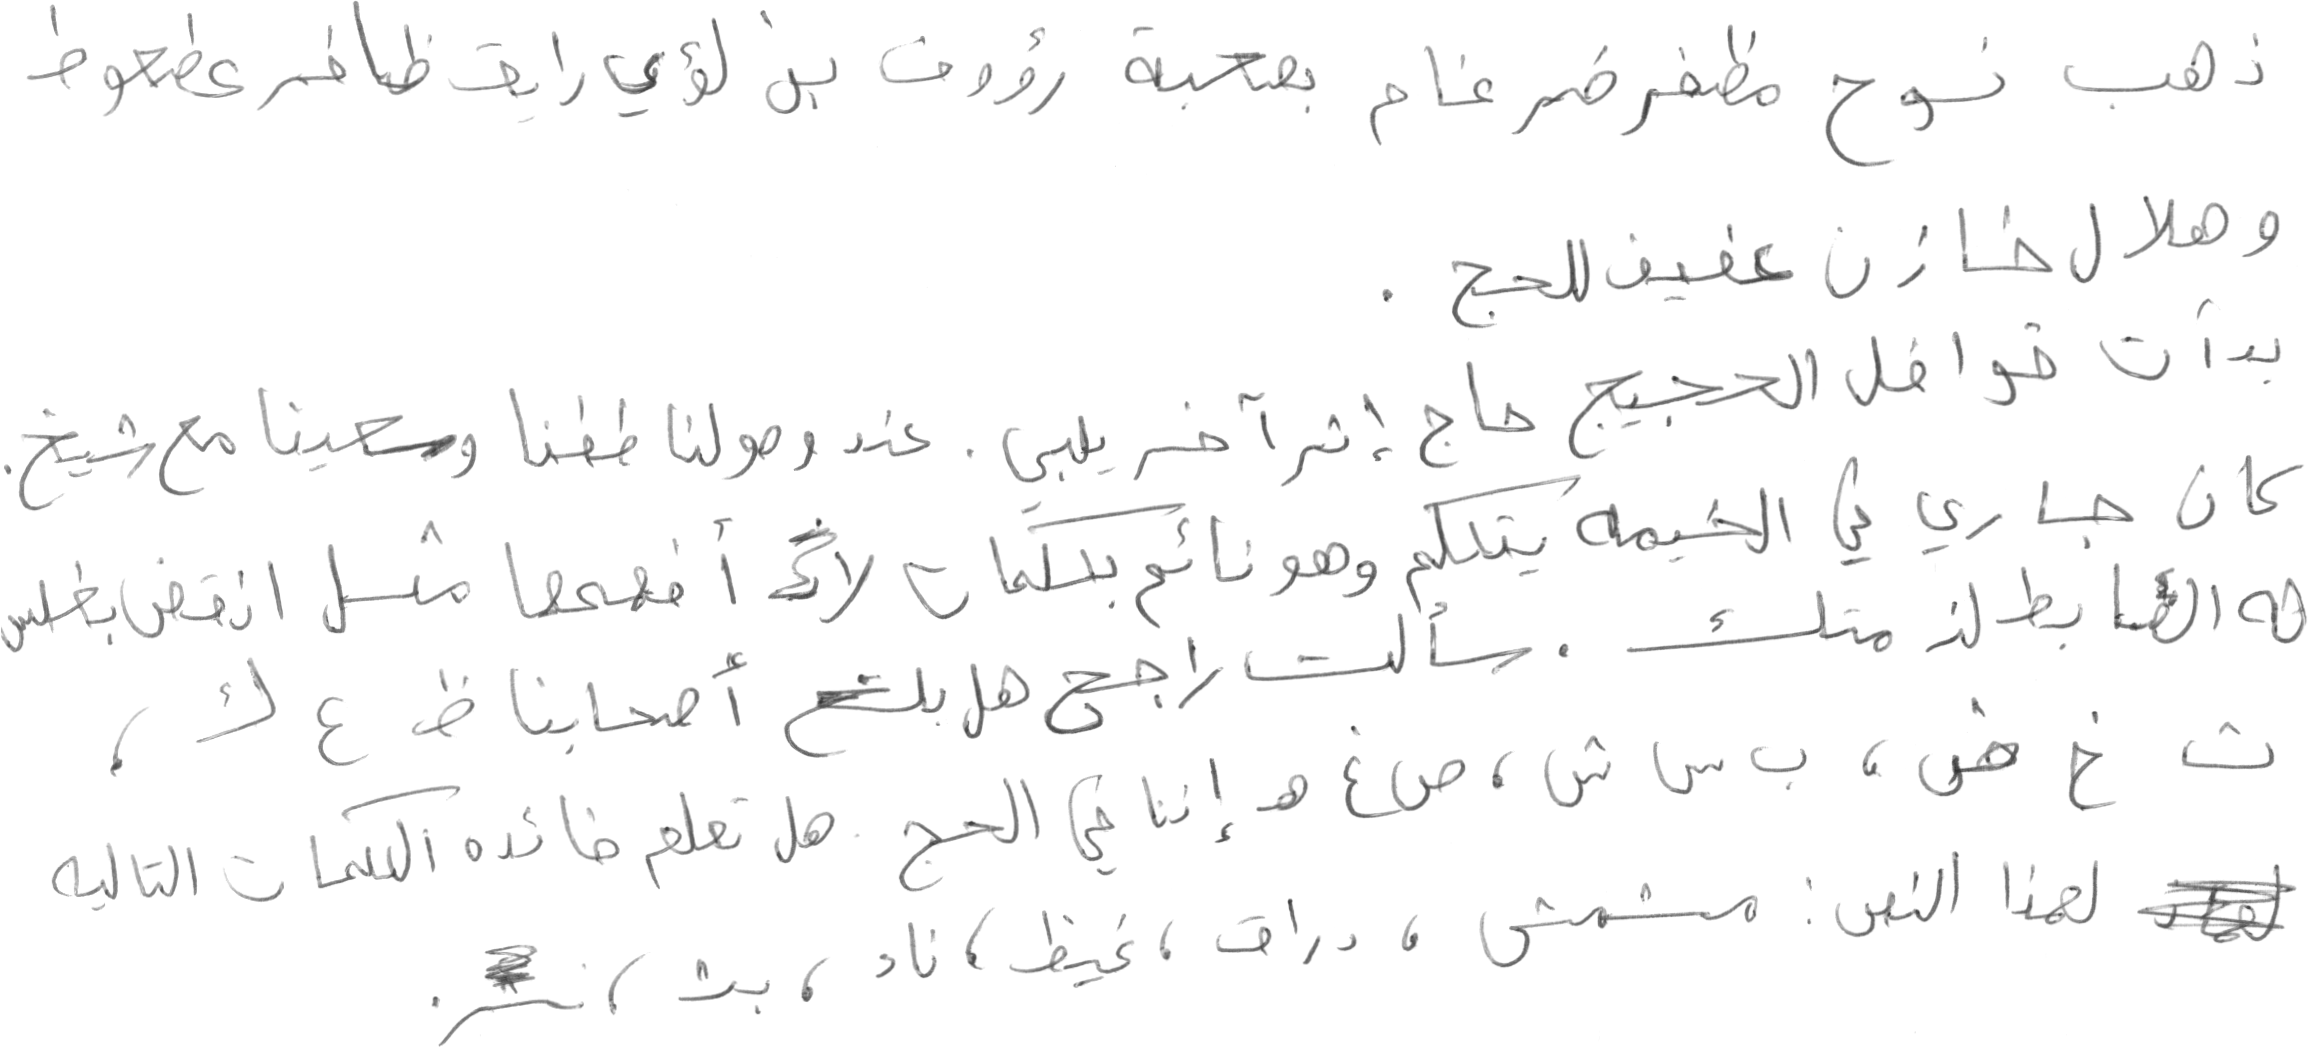 ذهب نوح مظفر ضرغام بصحبة رؤوف بن لؤي رايق ظافر عضعوط
وهلال خازن عفيف للحج .
بدأت قوافل الحجيج حاج إثر آخر يلبي . عند وصولنا طفنا وسعينا مع شيخ .
كان جاري في الخيمه يتكلم وهو نائم بكلمات لا أفهمها مثل انقض بغلس
له الضابط لذ متك . سألت راجح هل بلغ أصحابنا ظ ع ك ،
ث خ ض ، ب س ش ، ص غ هـ إننا في الحج . هل تعلم فائده الكلمات التاليه
لهذا النص : مشمش ، دراق ، غيظ ، ناد ، بث ، نسر .